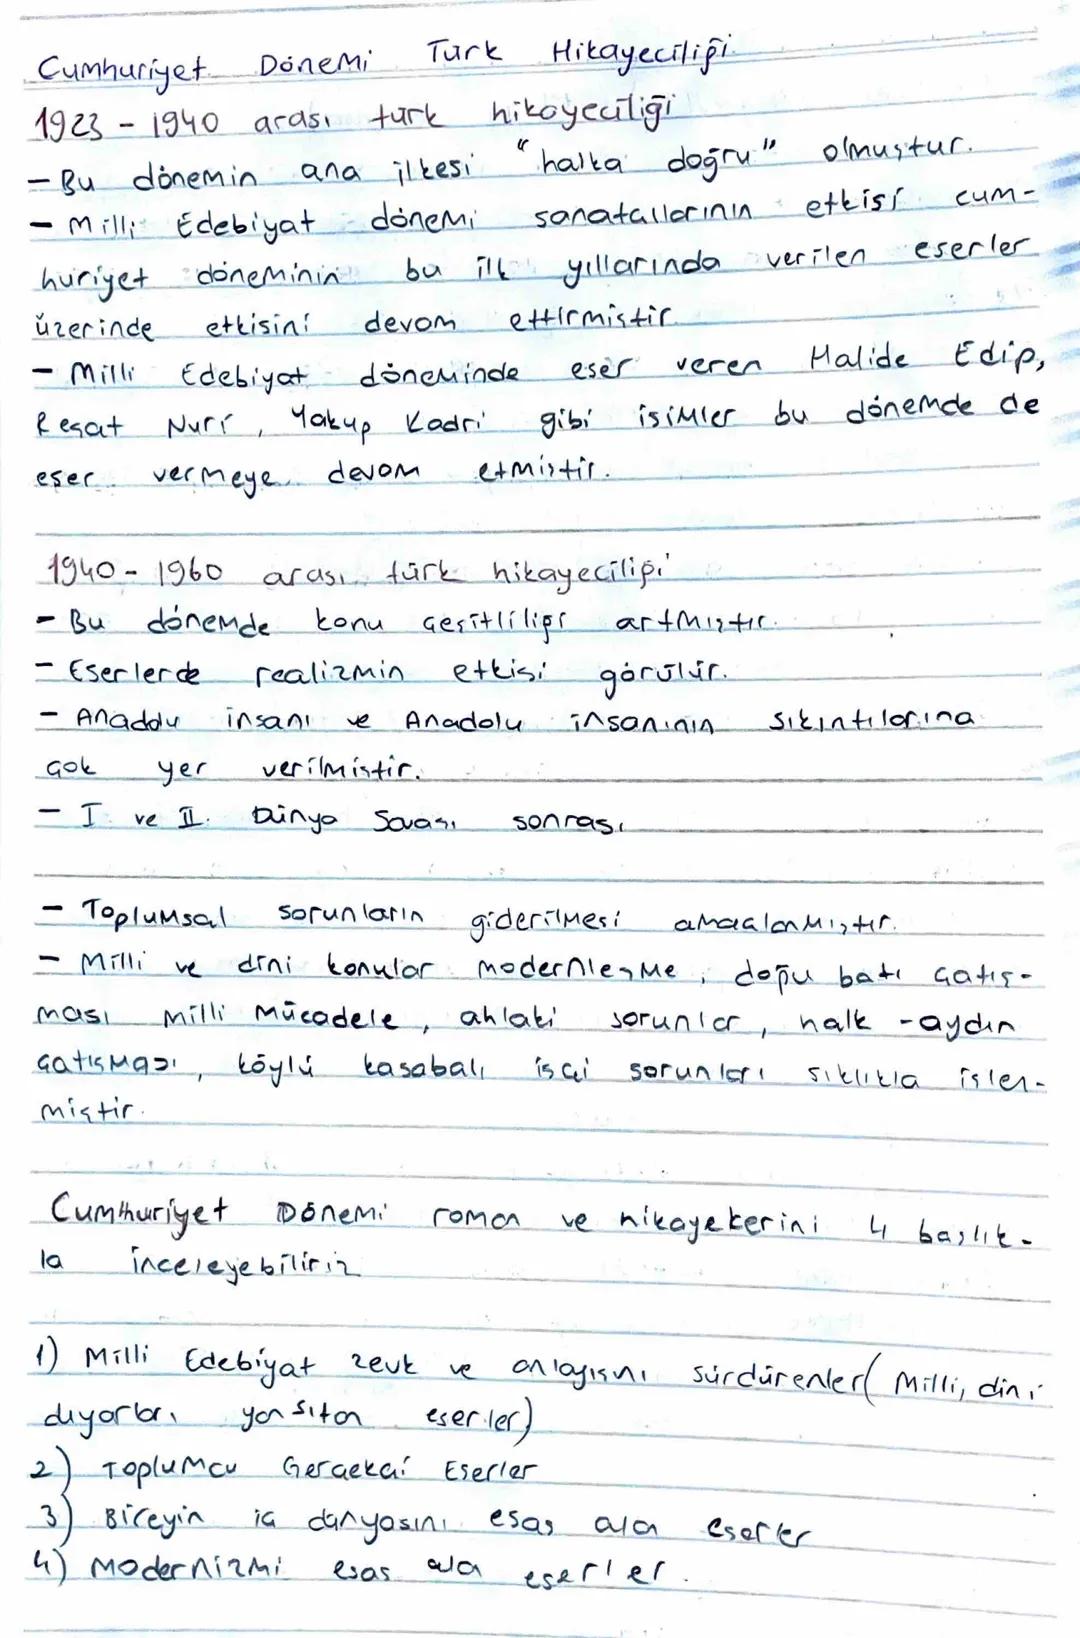 Cumhuriyet Dönemi Türk Hikayeciliği
1923 - 1940 arası türk hikayeciliği
- Bu dönemin ana ilkesi "halka doğru" olmuştur.
- Milli Edebiyat dönemi sanatallarının etkisi cum-
huriyet döneminin bu ilk yıllarında verilen eserler
üzerinde etkisini devam ettirmiştir
- Milli Edebiyat döneminde eser veren Halide Edip,
Reşat Nuri, Yakup Kadri gibi isimler bu dönemde de
eser vermeye devam etmiştir.
1940 - 1960 arası türk hikayeciliği
- Bu dönemde konu çeşitliliği artmıştır.
- Eserlerde realizmin etkisi görülür.
- Anadolu insanı ve Anadolu insanının sıkıntılarına
çok yer verilmiştir.
- I ve II. Dünya Savaşı sonrası
- Toplumsal sorunların giderilmesi amaçlanmıştır.
- Milli ve dini konular modernleşme, doğu batı çatış-
ması milli mücadele, ahlaki sorunlar, halk - aydın
çatışması, köylü kasabalı işçi sorunları sıklıkla işlen-
miştir.
Cumhuriyet Dönemi roman ve hikayekerini 4 başlık-
la inceleyebiliriz
1) Milli Edebiyat zevk ve anlayışını sürdürenler (Milli, dini
duyarları yansıtan eserler)
2) Toplumcu Gerçekçi Eserler
3) Bireyin iç dünyasını esas alan eserler
4) Modernizmi esas alan eserler.